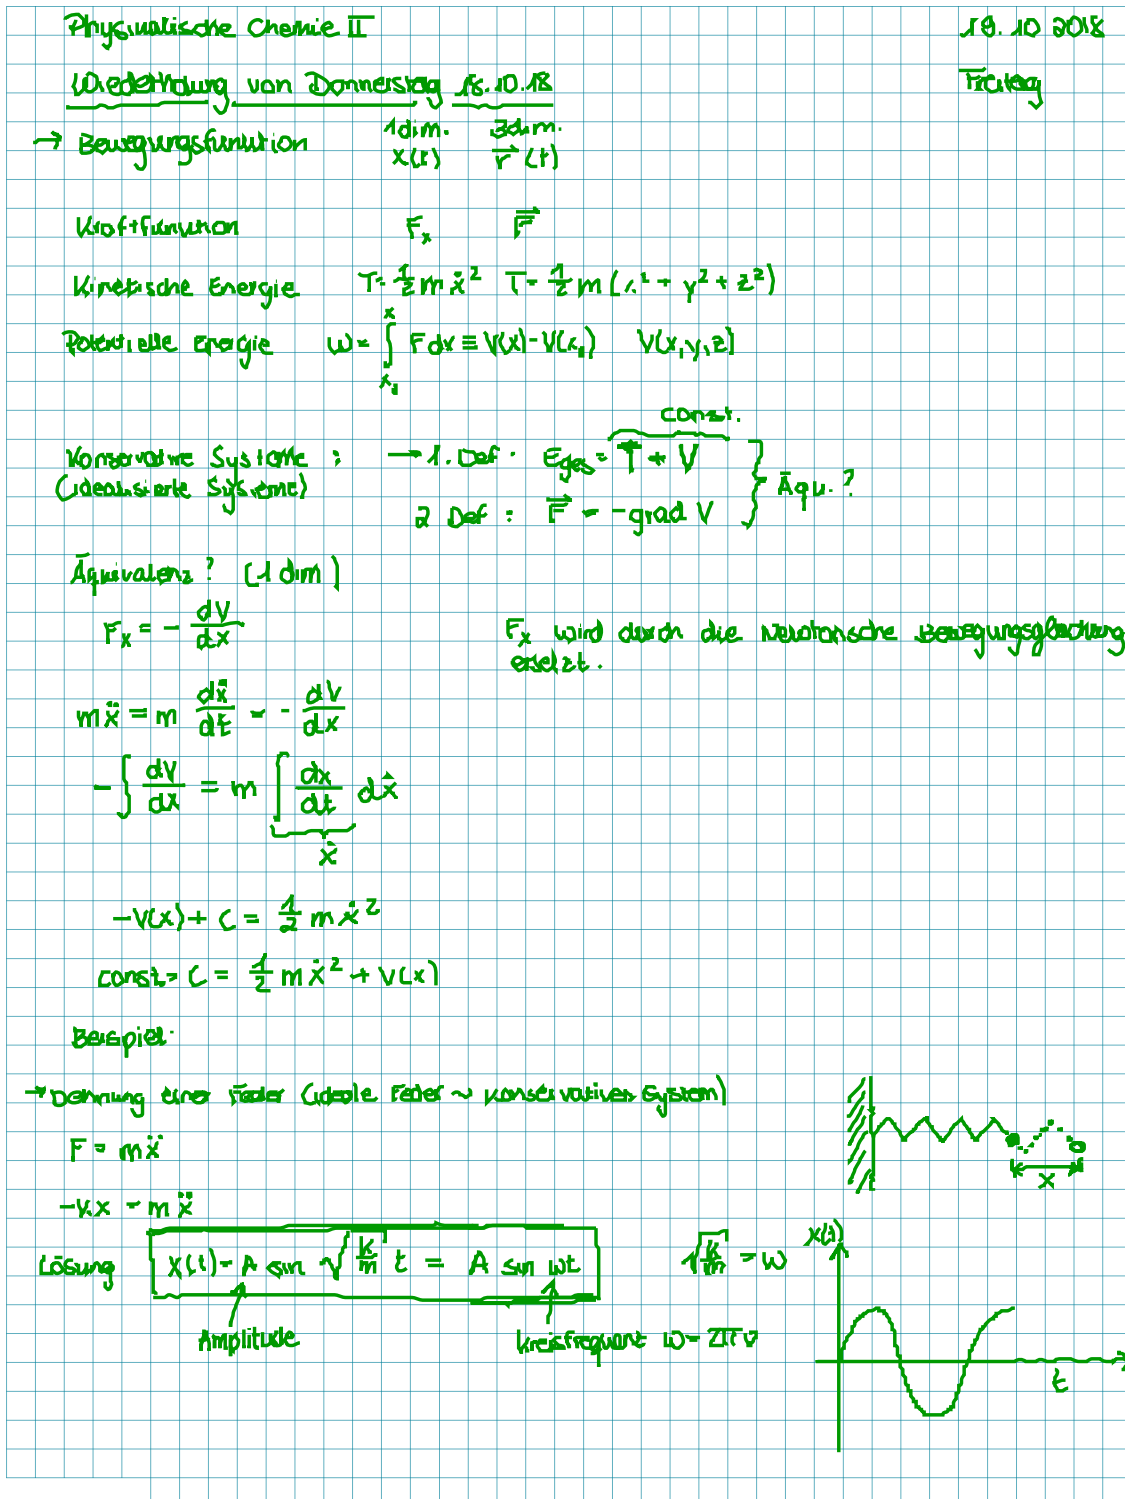 Physikalische Chemie II 19.10 2018
Wiederholung von Donnerstag 18.10.18 Freitag
1dim. 3dim.
→ Bewegungsfunktion x(t) r⃗(t)
Kraftfunktion Fₓ F⃗
Kinetische Energie T = 1/2 m ẋ² T = 1/2 m (ẋ² + y² + z²)
Potentielle Energie W = ∫ₓ₁ˣ F dx ≡ V(x) - V(x₁) V(x,y,z)
const.
Konservative Systeme : → 1. Def. E_ges = T + V
(idealisierte Systeme) Äqu. ?
2 Def : F⃗ = -grad V
Äquivalenz ? (1 dim)
Fₓ = - dV/dx Fₓ wird durch die Newtonsche Bewegungsgleichung
ersetzt.
mẍ = m dẋ/dt = - dV/dx
- ∫ dV/dx = m ∫ dx/dt dẋ
ẋ
-V(x) + C = 1/2 m ẋ²
const = C = 1/2 m ẋ² + V(x)
Beispiel:
→ Dehnung einer Feder (ideale Feder ~ konservatives System)
F = mẍ
x
-k x = m ẍ
Lösung x(t) = A sin √(k/m) t = A sin ωt √(k/m) = ω x(t)
Amplitude Kreisfrequent ω = 2πν
t